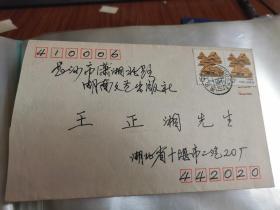 410006
长沙市潇湘北路
湖南文艺出版社
王正湘先生
湖北省十堰市二汽20厂
442020